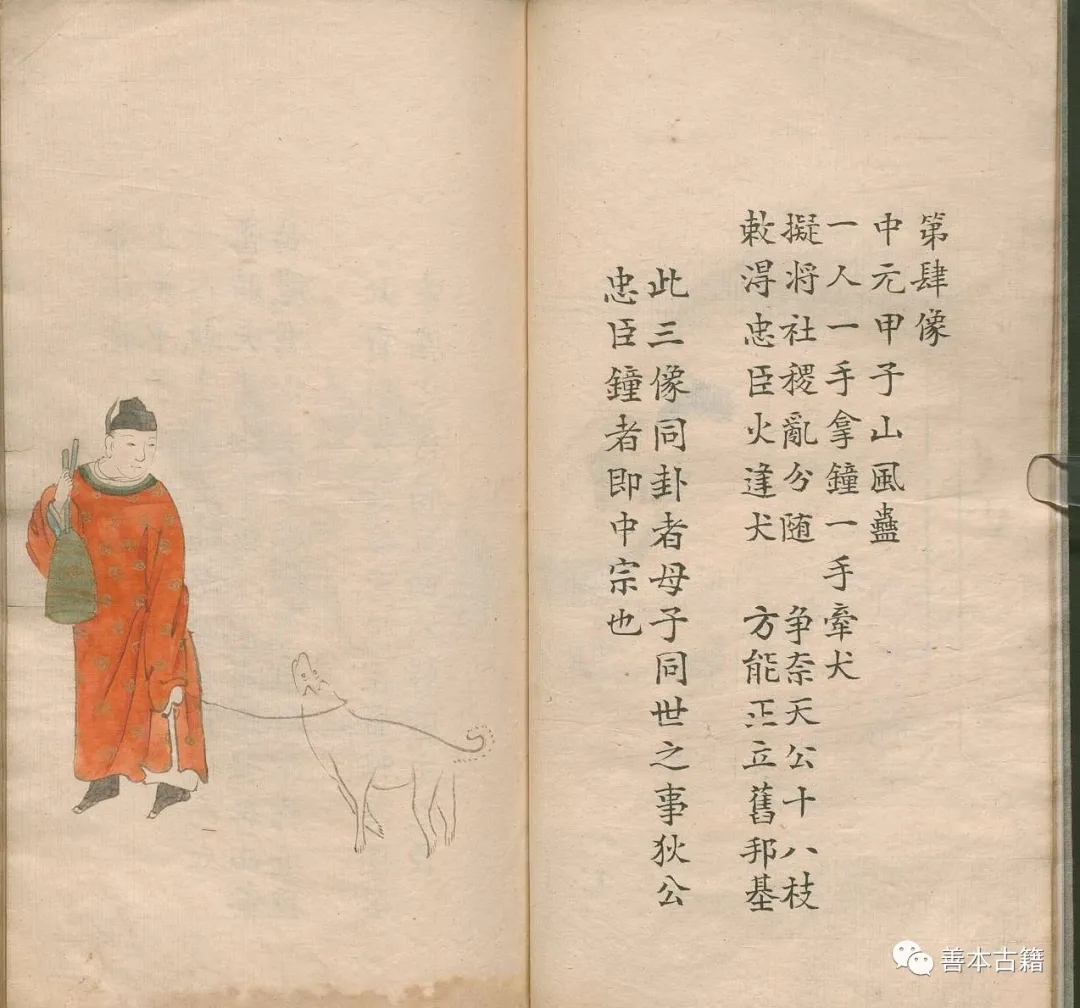 第肆像
中元甲子山風蠱
一人一手拿鐘一手牽犬
擬将社稷亂分随　争奈天公十八枝
敕淂忠臣火逢犬　方能正立舊邦基
此三像同卦者母子同世之事狄公
忠臣鐘者即中宗也
善本古籍